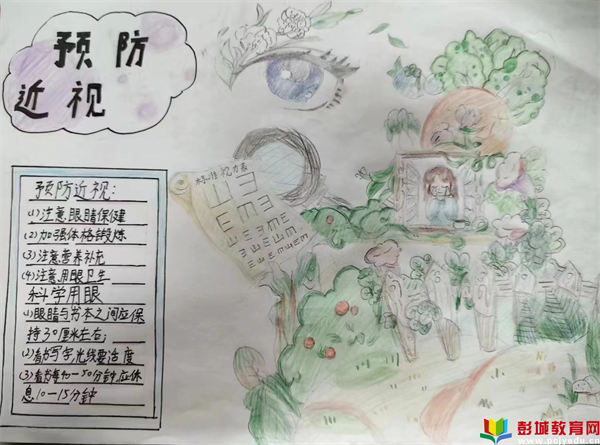 预防
近视
预防近视：
(1)注意眼睛保健
(2)加强体格锻炼
(3)注意营养补充
(4)注意用眼卫生
科学用眼
(1)眼睛与书本之间应保
持30厘米左右；
(2)看书写字，光线要适度
(3)看书每40一50分钟，应休
息10一15分钟
标准视力表
E Ǝ
E m Ǝ
彭城教育网
www.pcjyedu.cn